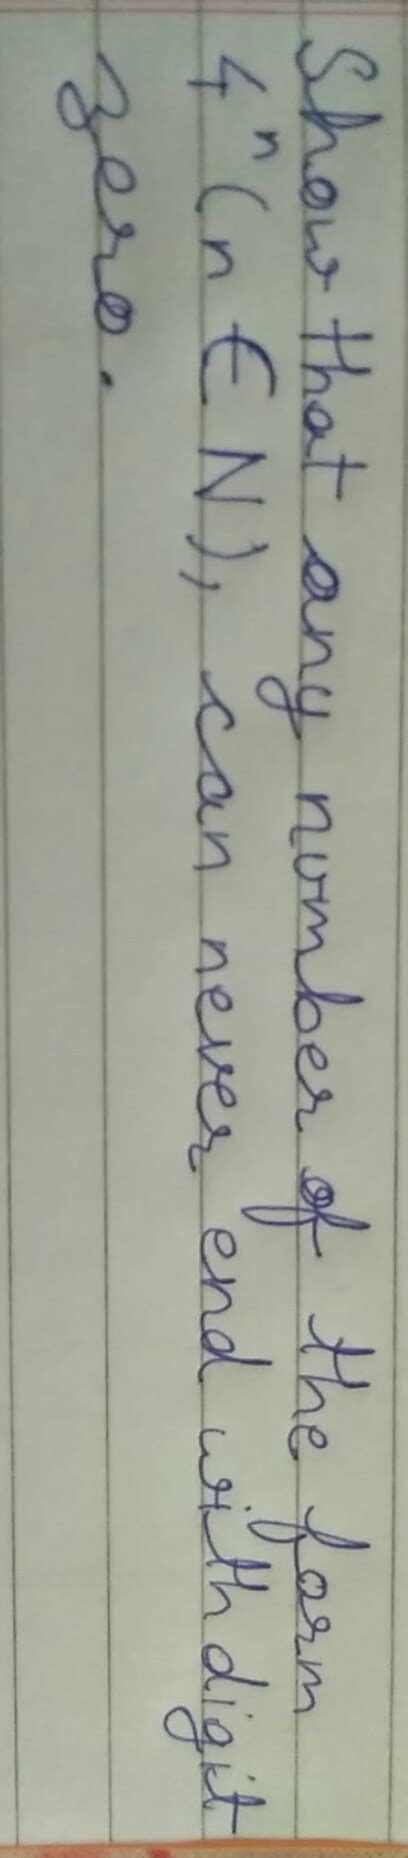 Show that any number of the form
4ⁿ (n ∈ N), can never end with digit
zero.